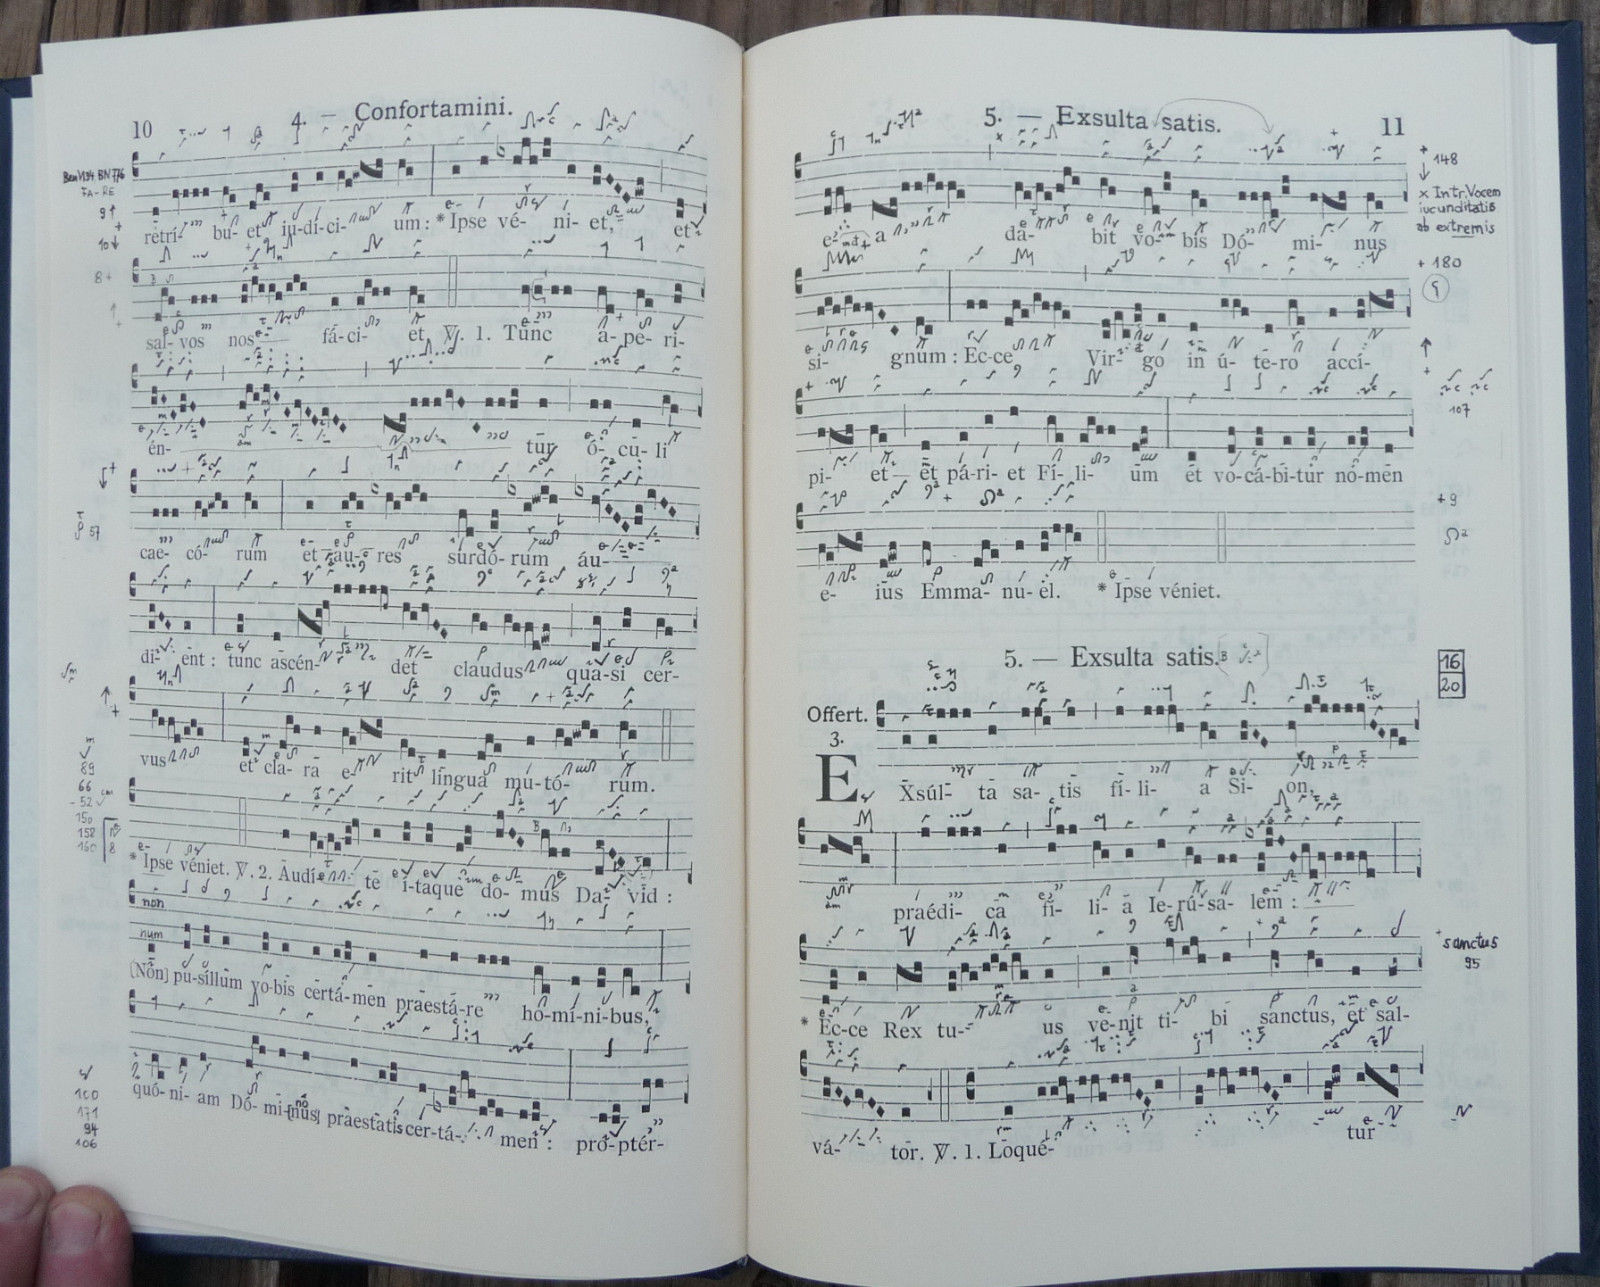 10
4. — Confortamini.
Ben V34 BN 776
FA-RE
9↑
10↓
8+
rētrí- bu- et iu-dí-ci- um: * Ipse vé- ni- et, et
sal- vos nos fá-ci- et. ℣. 1. Tunc a- pe- ri-
én- tūr ó- cū- li
cae- có- rum et au- res surdó- rum áu-
57
di- ēnt: tunc ascén- det claudus qua-si cer-
vus et cla- rā e- rit língua mu-tó- rum.
89
66
-52
150
158
160
* Ipse véniet. ℣. 2. Audí- te ítaque do- mus Da- vid:
non
num
[Non] pu-síllum vo-bis certá-men praestá-re ho-mí-ni-bus,
quó-ni- am Dó- mi-[nus] praestatis cer-tá- men: pro-ptér-
100
171
94
106
5. — Exsulta satis.
11
148
× Intr. Vocem
iucunditatis
ab extremis
e- a da- bit vo- bis Dó- mi- nus
+ 180
si- gnum: Ec-ce Vir- go in ú- te-ro accí-
107
pi- et et pá-ri- et Fí- li- um et vo-cá-bi-tur nō-mēn
+ 9
e- ius Emma- nu- el. * Ipse véniet.
5. — Exsulta satis.
16
20
Offert.
3.
EXsúl- ta sa- tis fí- li- a Si- on,
praédi- ca fí- li- a Ie-rú-sa- lem:
+ sanctus
95
* Ec-ce Rex tu- us ve-nit ti- bi sanctus, et sal-
vá- tor. ℣. 1. Loqué- tur